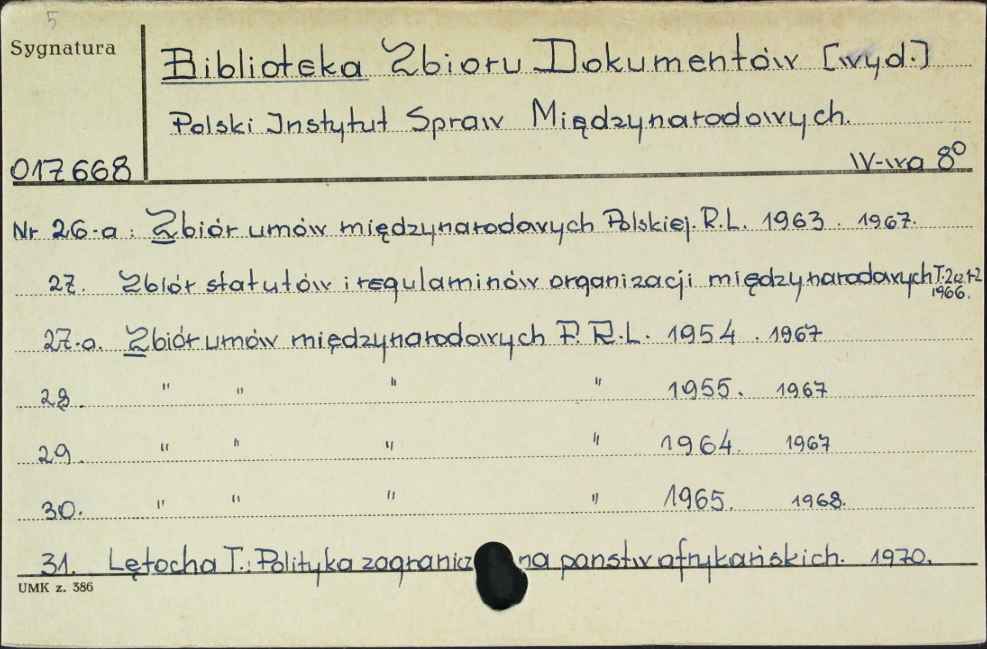 5
Sygnatura
Biblioteka Zbioru Dokumentów [wyd.]
Polski Instytut Spraw Międzynarodowych.
017668
W-wa 8°
Nr 26-a : Zbiór umów międzynarodowych Polskiej. R.L. 1963. 1967.
27. Zbiór statutów i regulaminów organizacji międzynarodowych T.2 cz 1-2
1966.
27-a. Zbiór umów międzynarodowych P. R.L. 1954. 1967
28. " " " " 1955. 1967
29. " " " " 1964. 1967
30. " " " " 1965. 1968.
31. Lętocha T.: Polityka zagranicz na panstw afrykańskich. 1970.
UMK z. 386